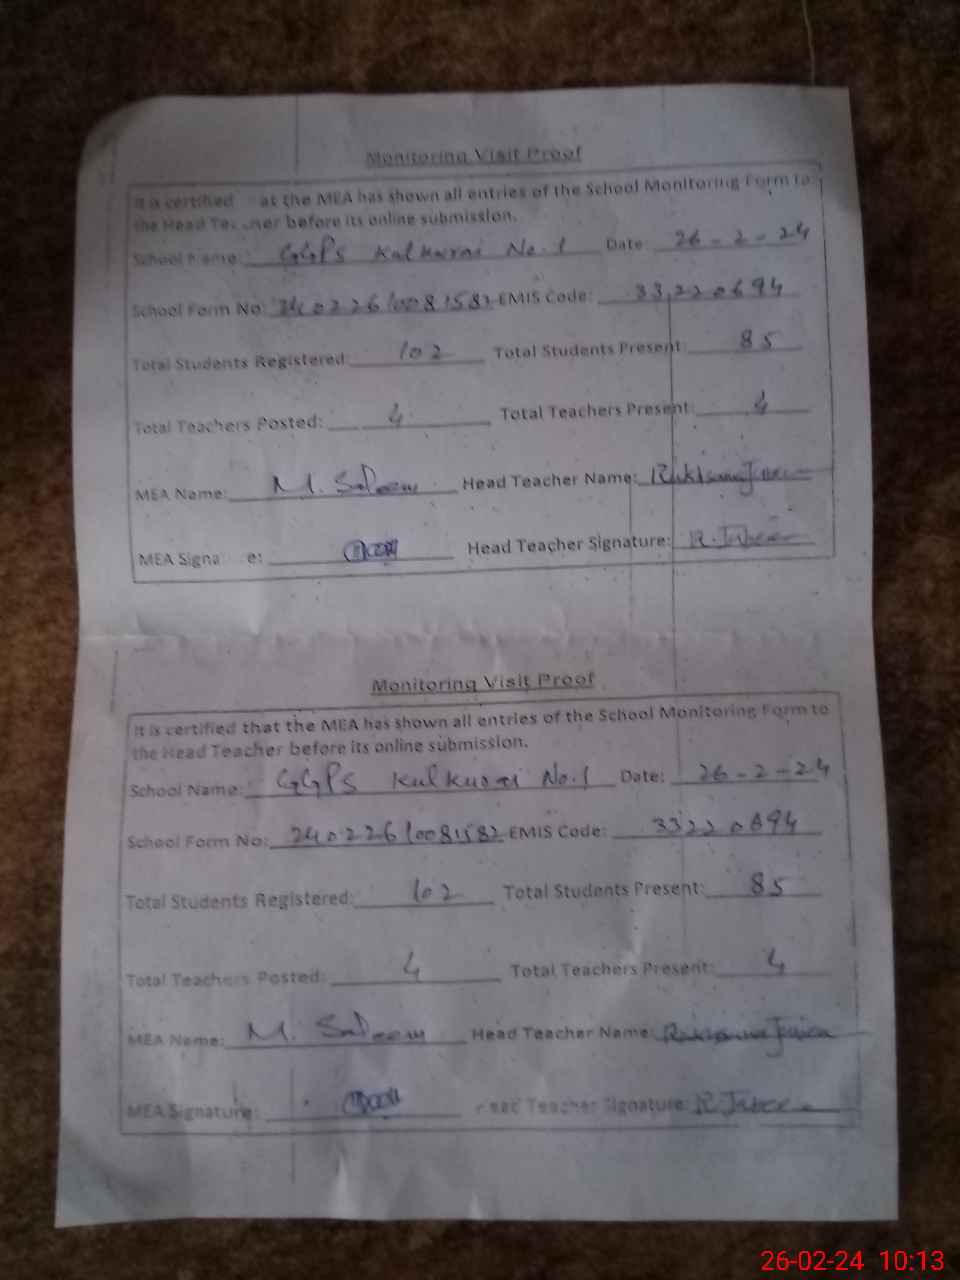 Monitoring Visit Proof
It is certified at the MEA has shown all entries of the School Monitoring Form to
the Head Te cher before its online submission.
School Name: GGPS Kulkurai No.1 Date 26-2-24
School Form No: 24022610081582 EMIS Code: 33220694
Total Students Registered: 102 Total Students Present: 85
Total Teachers Posted: 4 Total Teachers Present: 4
MEA Name: M. Saleem Head Teacher Name:
MEA Signa e: Head Teacher Signature: R.
Monitoring Visit Proof
It is certified that the MEA has shown all entries of the School Monitoring Form to
the Head Teacher before its online submission.
School Name: GGPS Kulkurai No.1 Date: 26-2-24
School Form No: 24022610081582 EMIS Code: 33220694
Total Students Registered: 102 Total Students Present: 85
Total Teachers Posted: 4 Total Teachers Present: 4
MEA Name: M. Saleem Head Teacher Name:
MEA Signature: Head Teacher Signature: R.
26-02-24 10:13